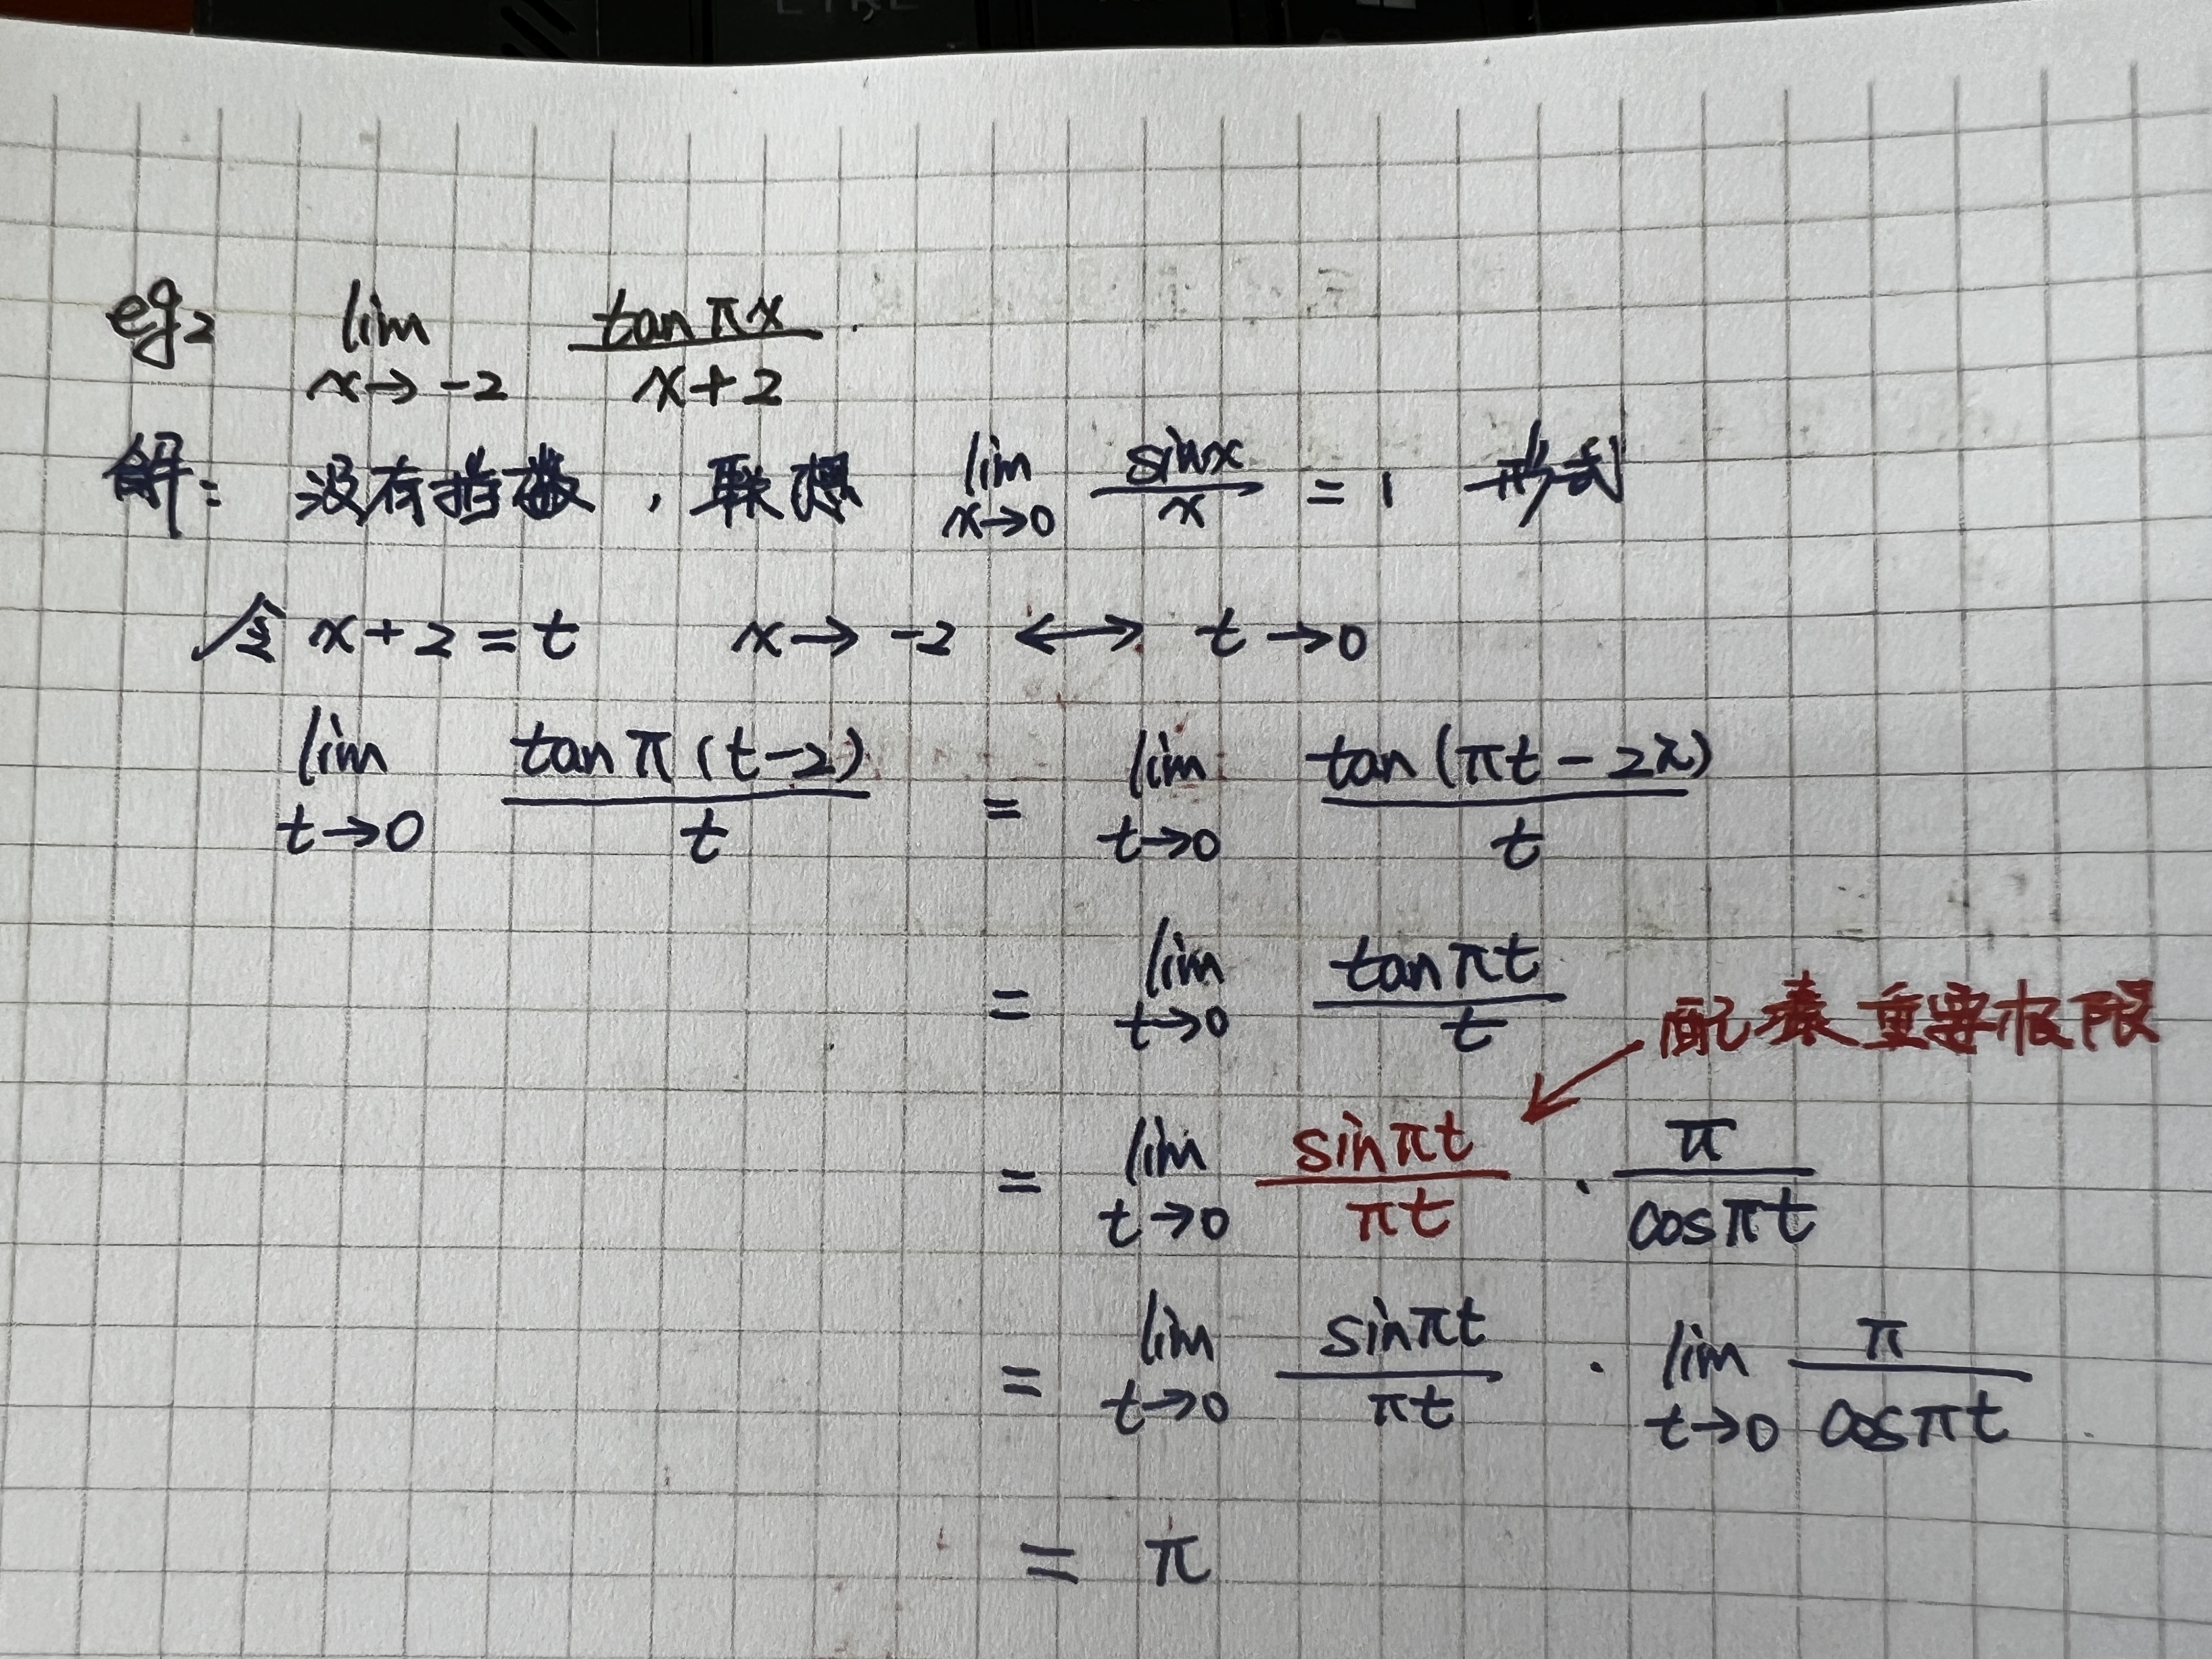 eg2 lim x→-2 tanπx / x+2 .
解: 没有指数, 联想 lim x→0 sinx / x = 1 形式
令 x+2=t x→-2 ⟷ t→0
lim t→0 tanπ(t-2) / t = lim t→0 tan(πt-2π) / t
= lim t→0 tanπt / t
配凑重要极限
= lim t→0 sinπt / πt · π / cosπt
= lim t→0 sinπt / πt · lim t→0 π / cosπt
= π